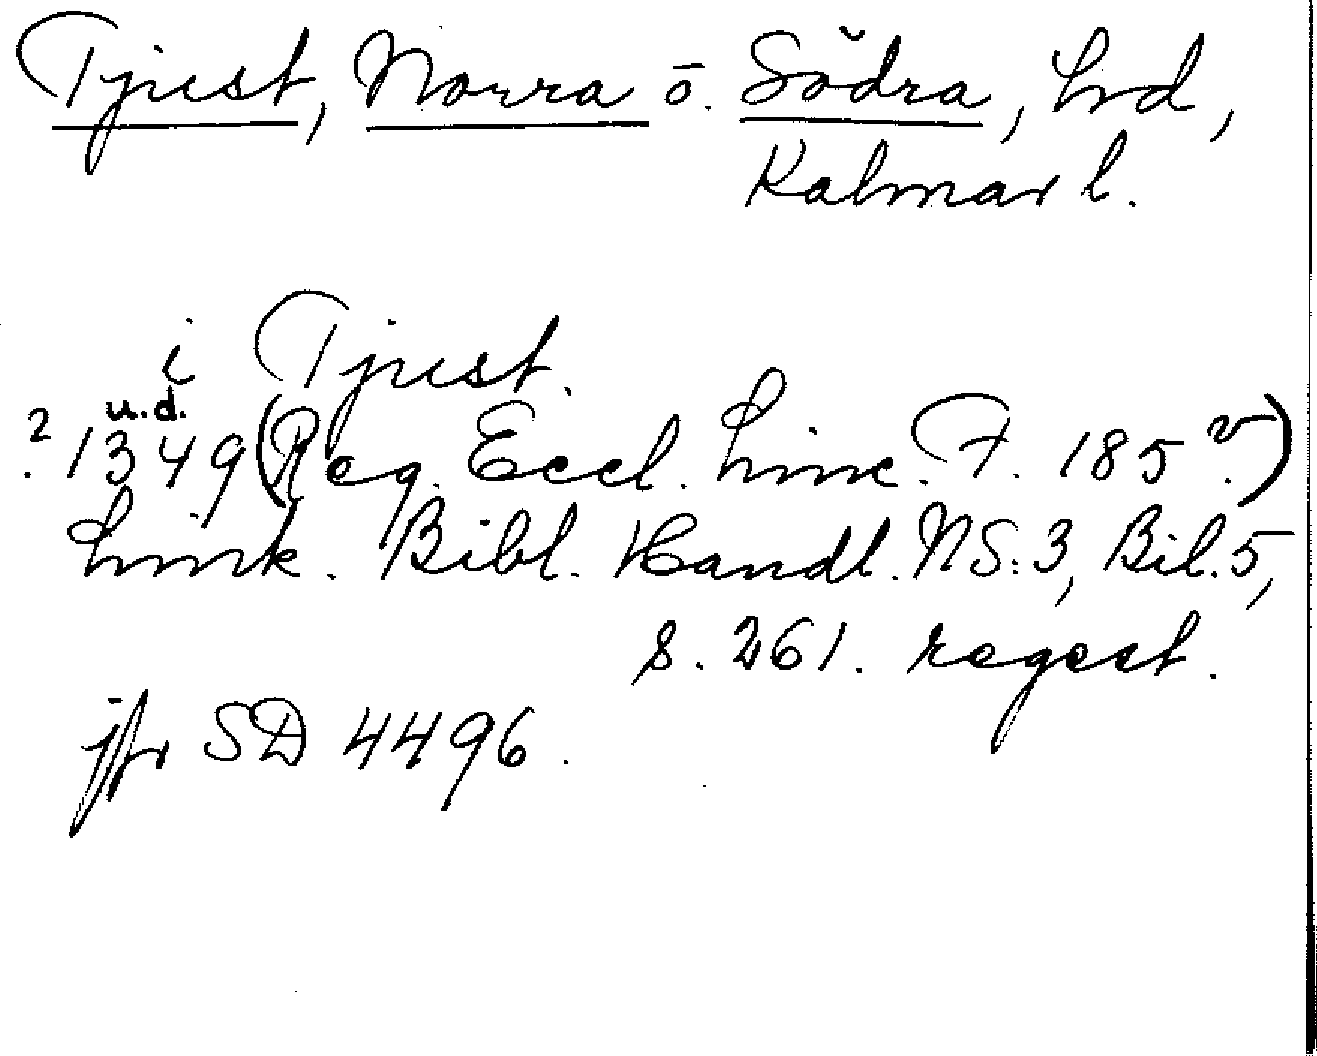 Tjust, Norra o. Södra, hd,
Kalmar l.
i Tjust.
u.d.
? 1349 (Reg. Eccl. Linc. F. 185 v.)
Link. Bibl. Handl. NS: 3, Bil. 5,
s. 261. regest.
jfr SD 4496.